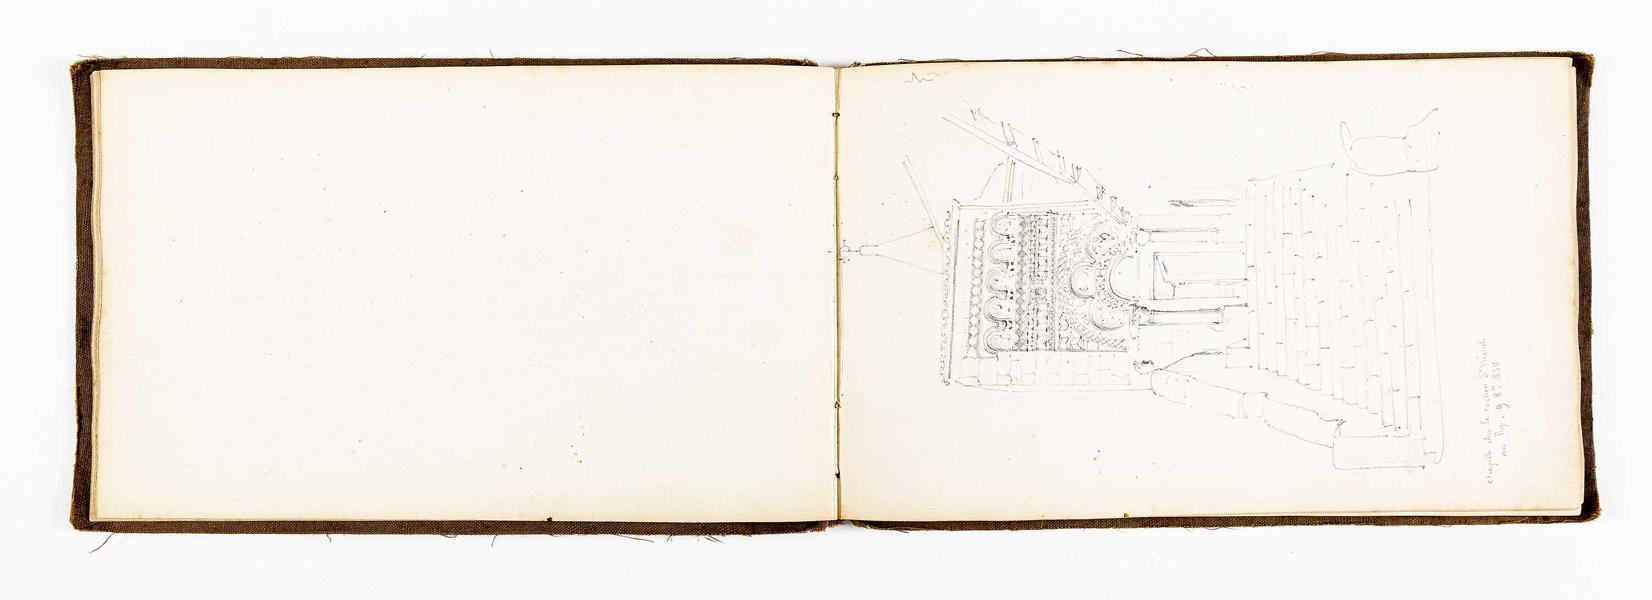 chapelle sur le rocher St Michel
au Puy. 9 8bre 1854